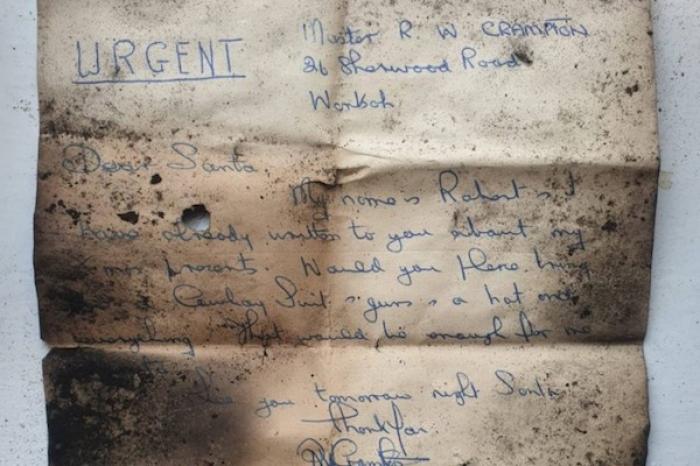 URGENT
Master R W CRAMPTON
26 Sherwood Road
Worksop
Dear Santa
My name is Robert & I
have already written to you about my
Xmas presents. Would you please bring
me a Cowboy Suit & guns & a hat and
everything. That would be enough for me
See you tomorrow night Santa
Thankyou
R Crampton